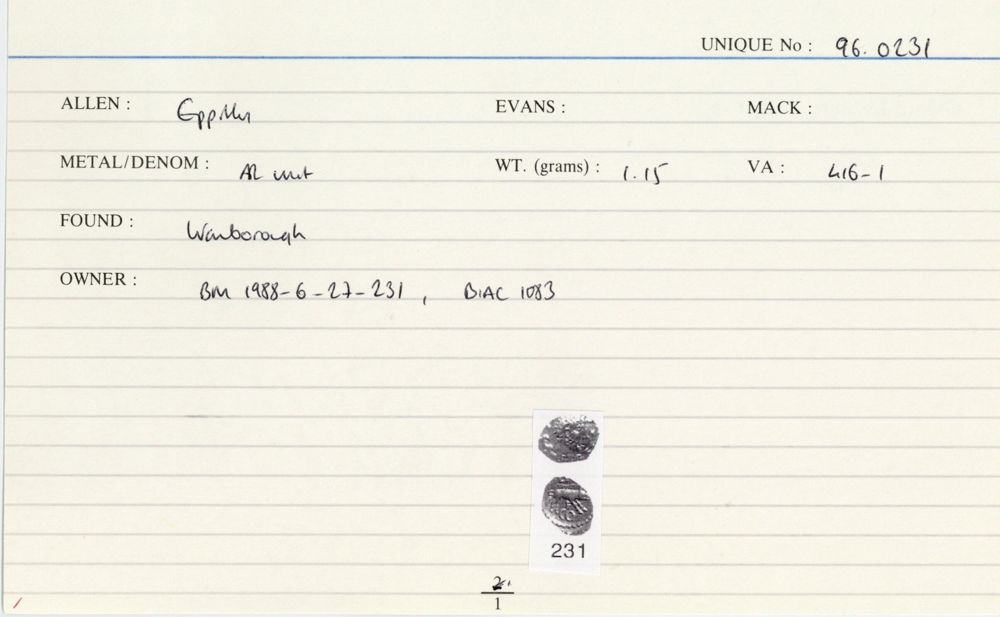 UNIQUE No : 96.0231
ALLEN : Eppillus EVANS : MACK :
METAL/DENOM : AR unit WT. (grams) : 1.15 VA : 416-1
FOUND : Wanborough
OWNER : BM 1988-6-27-231, BIAC 1083
231
1